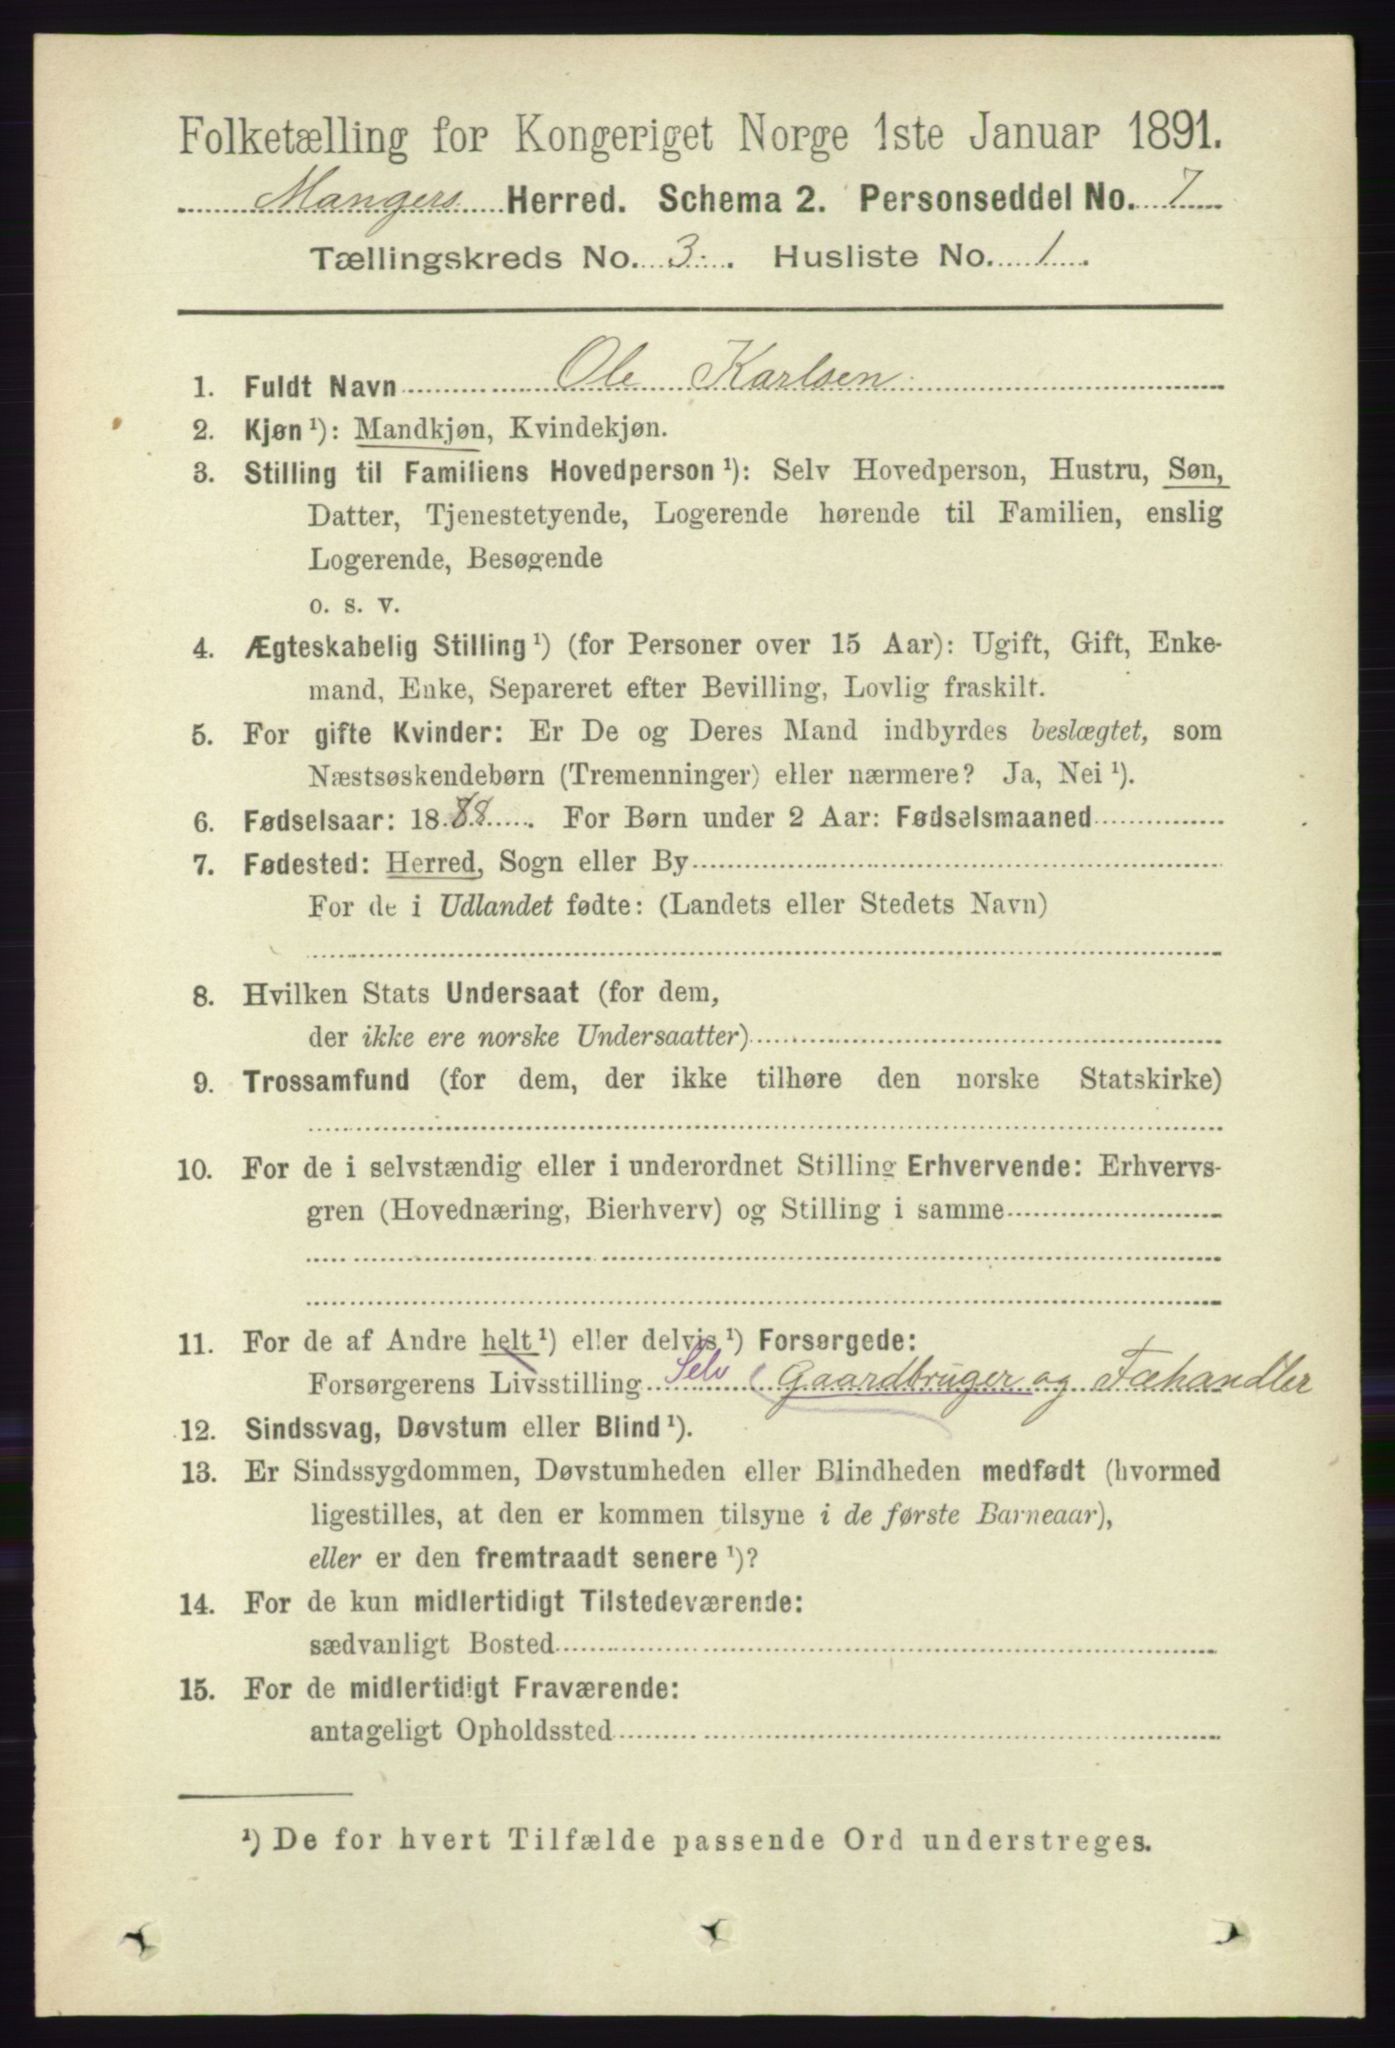 Folketælling for Kongeriget Norge 1ste Januar 1891.
Mangers Herred. Schema 2. Personseddel No. 7
Tællingskreds No. 3. Husliste No. 1.
1. Fuldt Navn Ole Karlsen
2. Kjøn ¹): Mandkjøn, Kvindekjøn.
3. Stilling til Familiens Hovedperson ¹): Selv Hovedperson, Hustru, Søn,
Datter, Tjenestetyende, Logerende hørende til Familien, enslig
Logerende, Besøgende
o. s. v.
4. Ægteskabelig Stilling ¹) (for Personer over 15 Aar): Ugift, Gift, Enke-
mand, Enke, Separeret efter Bevilling, Lovlig fraskilt.
5. For gifte Kvinder: Er De og Deres Mand indbyrdes beslægtet, som
Næstsøskendebørn (Tremenninger) eller nærmere? Ja, Nei ¹).
6. Fødselsaar: 1888. For Børn under 2 Aar: Fødselsmaaned
7. Fødested: Herred, Sogn eller By
For de i Udlandet fødte: (Landets eller Stedets Navn)
8. Hvilken Stats Undersaat (for dem,
der ikke ere norske Undersaatter)
9. Trossamfund (for dem, der ikke tilhøre den norske Statskirke)
10. For de i selvstændig eller i underordnet Stilling Erhvervende: Erhvervs-
gren (Hovednæring, Bierhverv) og Stilling i samme
11. For de af Andre helt ¹) eller delvis ¹) Forsørgede:
Forsørgerens Livsstilling Selv Gaardbruger og Fæhandler
12. Sindssvag, Døvstum eller Blind ¹).
13. Er Sindssygdommen, Døvstumheden eller Blindheden medfødt (hvormed
ligestilles, at den er kommen tilsyne i de første Barneaar),
eller er den fremtraadt senere ¹)?
14. For de kun midlertidigt Tilstedeværende:
sædvanligt Bosted
15. For de midlertidigt Fraværende:
antageligt Opholdssted
¹) De for hvert Tilfælde passende Ord understreges.